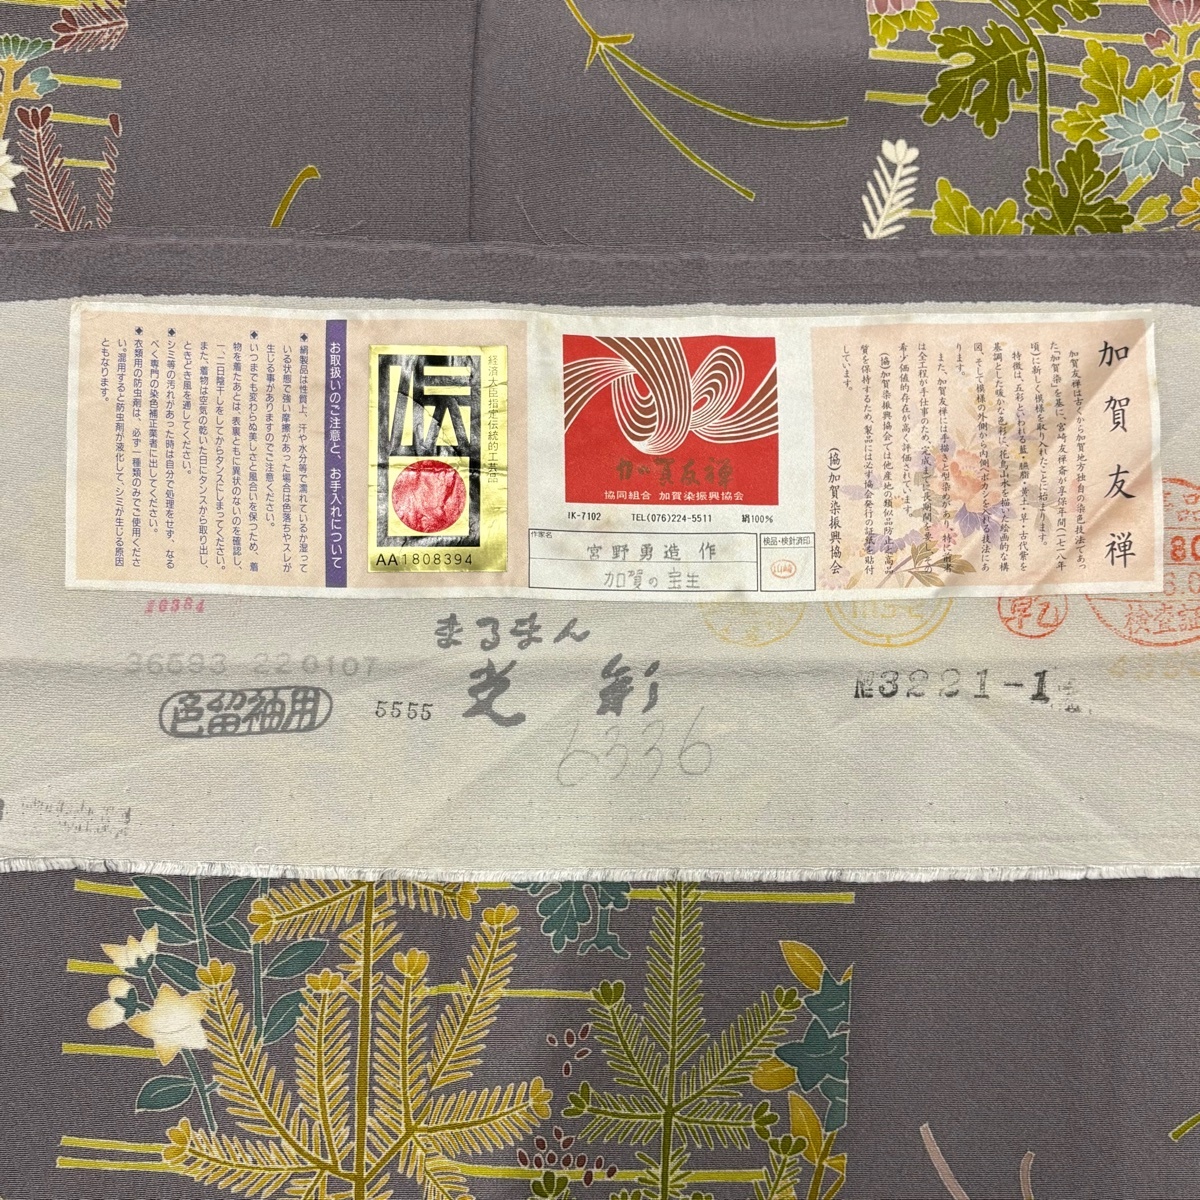 加賀友禅
加賀友禅は古くから加賀地方独自の染色技法であっ
た"加賀染"を基に、宮崎友禅斎が享保年間(七一八年
頃)に新しく模様を取り入れたことに始まります。
特徴は、五彩といわれる藍・臙脂・黄土・草・古代紫を
基調とした暖かな色彩に、花鳥山水を描いた絵画的な模
図、そして模様の外側から内側へボカシを入れる技法にあ
ります。
また、加賀友禅には手描きと型染めがあり、特に前者
は全工程が手仕事のため、完成までに長期間を要し、その
希少価値的存在が高く評価されています。
(協)加賀染振興協会では他産地の類似品防止と高品
質を保持するため、製品には必ず協会発行の証紙を貼付
しています。
(協)加賀染振興協会
加賀友禅
協同組合 加賀染振興協会
IK-7102 TEL(076)224-5511 絹100%
作家名
宮野勇造 作
加賀の宝生
検品・検針済印
山崎
経済大臣指定伝統的工芸品
伝
AA1808394
お取扱いのご注意と、お手入れについて
◆絹製品は性質上、汗や水分等で濡れているか湿って
いる状態で強い摩擦があった場合は色落ちやスレが
生じる事がありますのでご注意ください。
◆いつまでも変わらぬ美しさと風合いを保つため、着
物を着たあとは、表裏ともに異状のないのを確認し、
一、二日陰干しをしてからタンスにしまってください。
また、着物は空気の乾いた日にタンスから取り出し、
ときどき風を通してください。
◆シミ等の汚れがあった時は自分で処理をせず、なる
べく専門の染色補正業者に出してください。
◆衣類用の防虫剤は、必ず一種類のみでご使用くださ
い。混用すると防虫剤が液化して、シミが生じる原因
ともなります。
10384
36593 220107
色留袖用
5555
まるまん
光彩
6336
№3221-1
乾
検査証